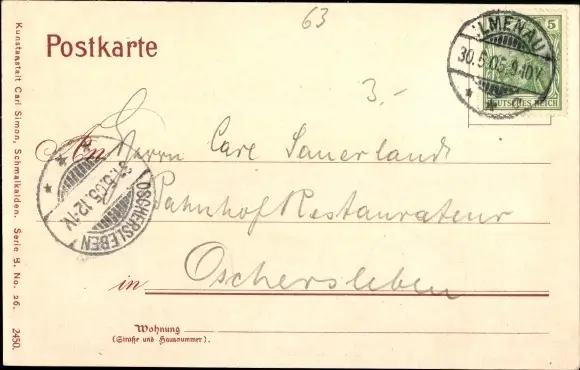 63
Postkarte
ILMENAU
30.5.05. 9-10V.
5
DEUTSCHES REICH
3.-
An Herrn Carl Sauerland
Bahnhof Restaurateur
in Oschersleben
OSCHERSLEBEN
31.5.05. 12-1V.
Wohnung
(Straße und Hausnummer).
Kunstanstalt Carl Simon, Schmalkalden. Serie H. No. 26. 2450.